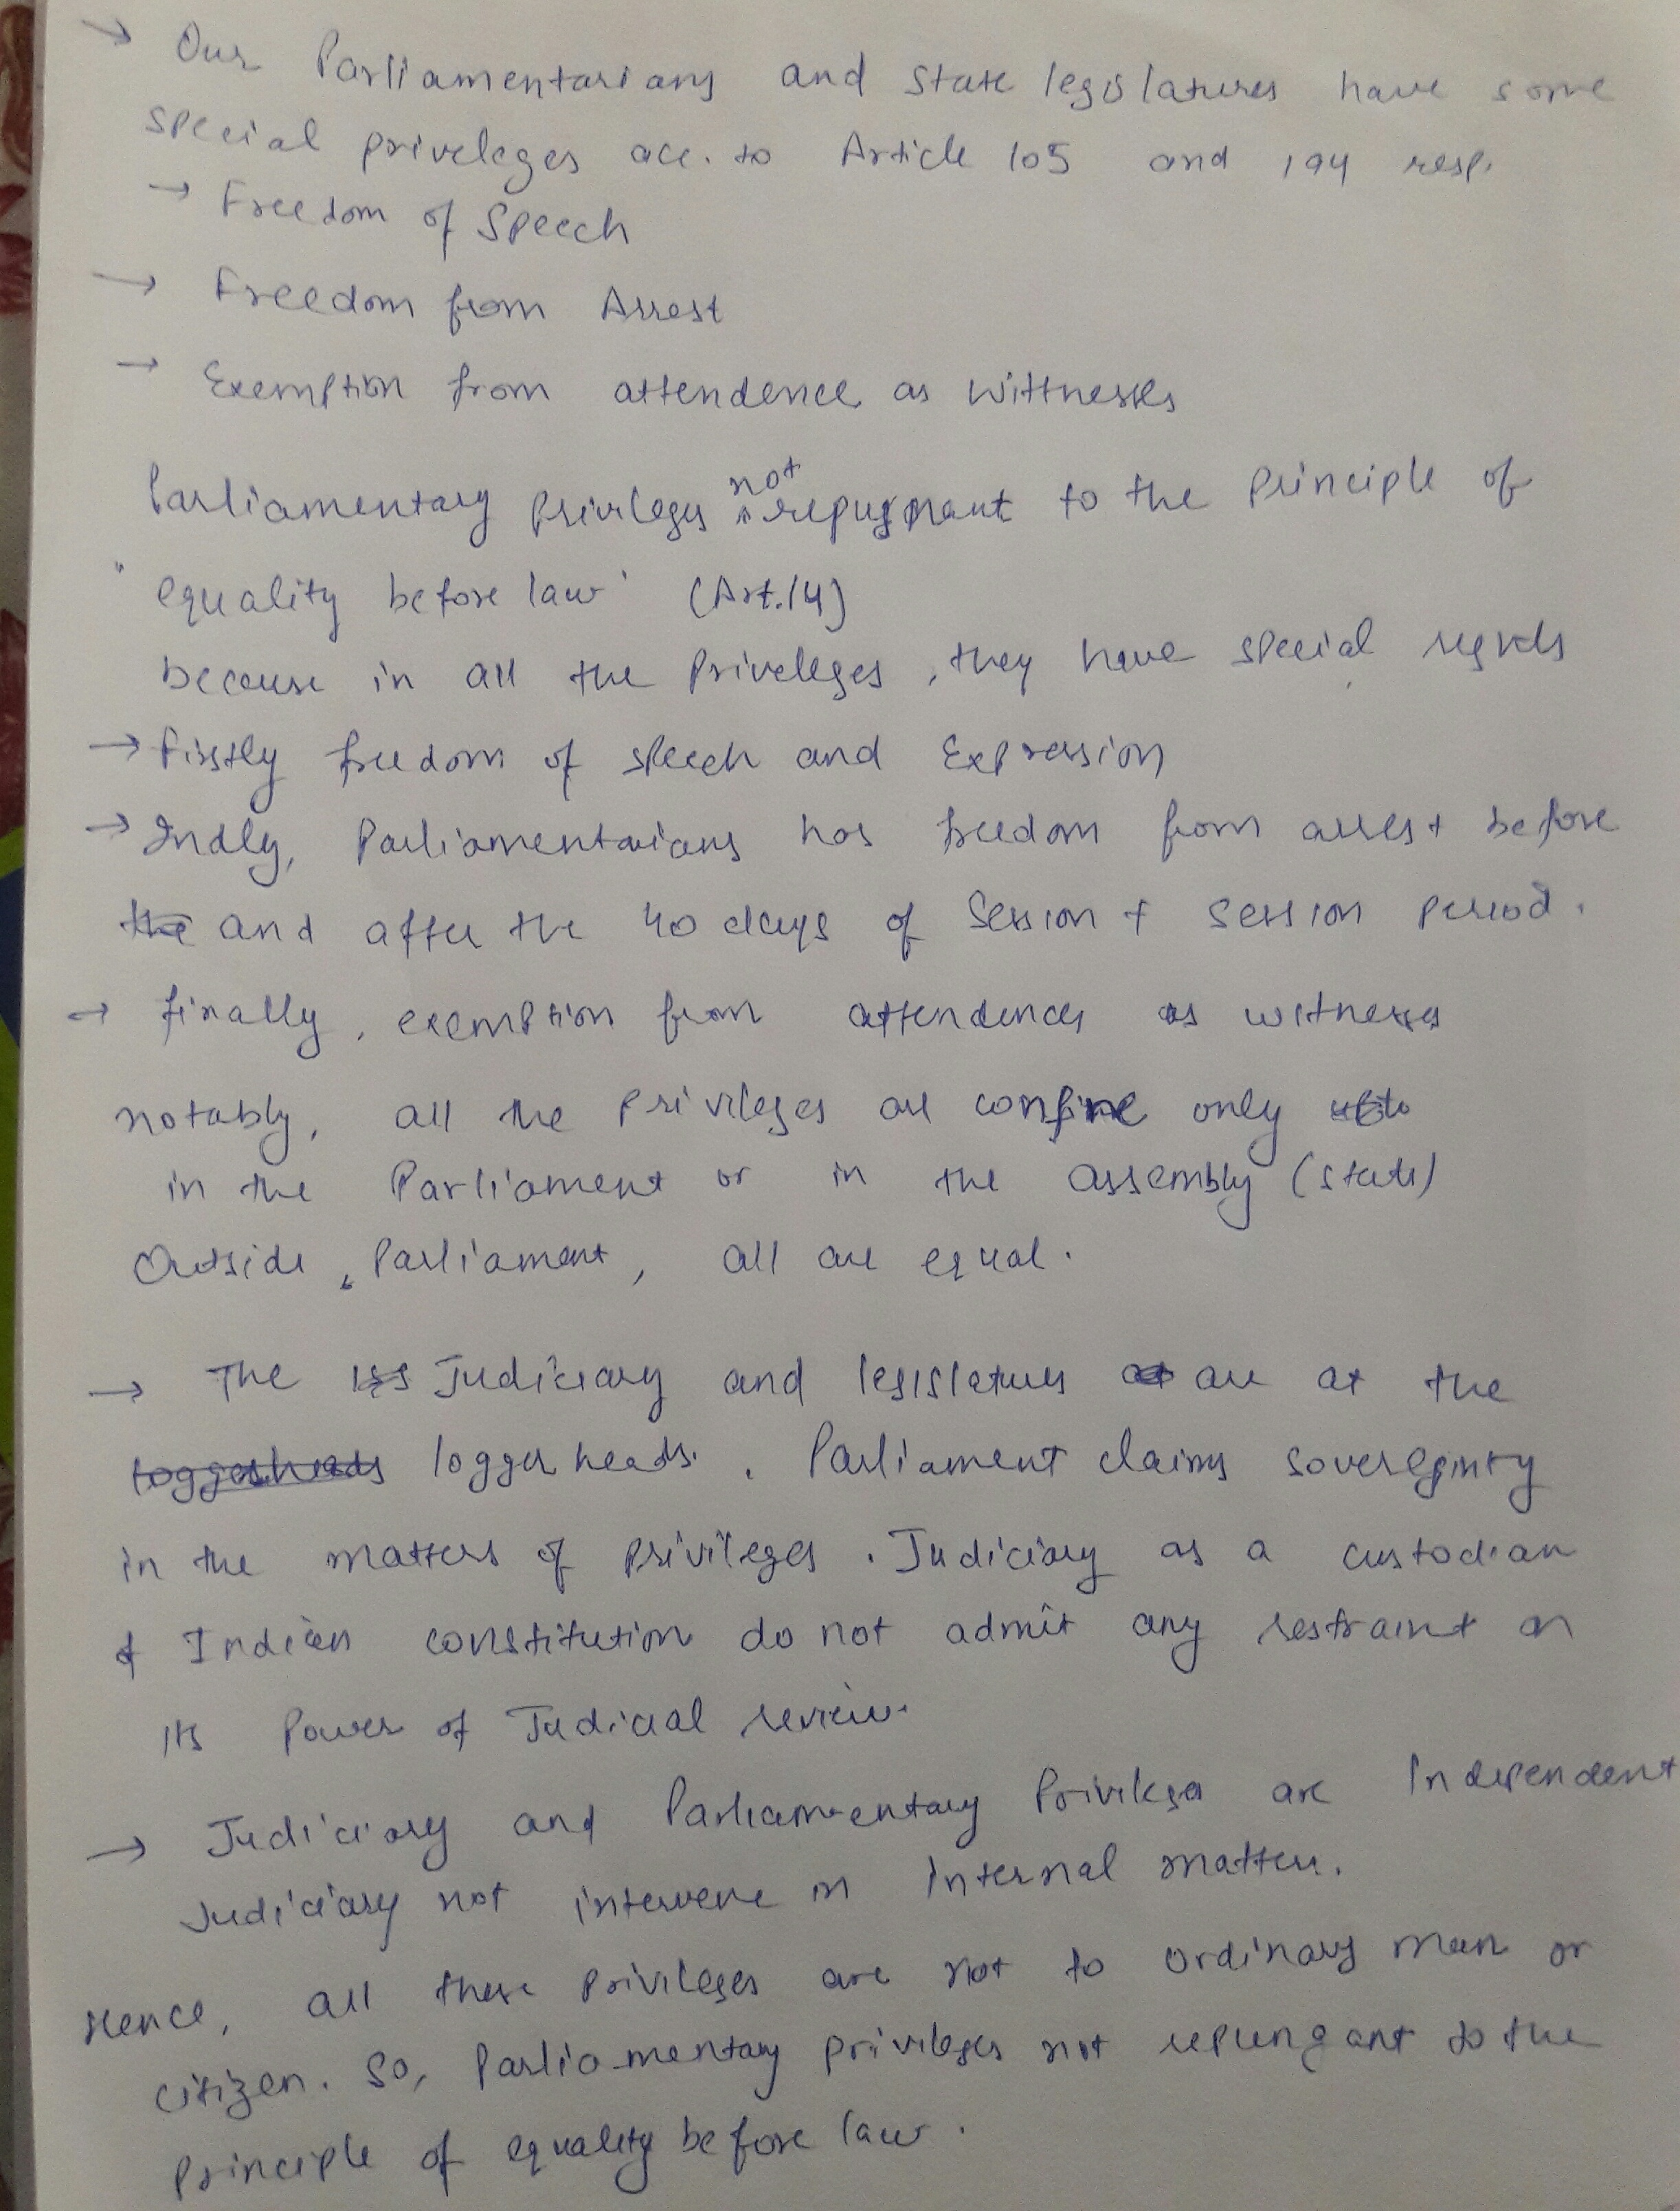 → Our Parliamentarians and State legislatures have some
special priveleges acc. to Article 105 and 194 resp.
→ Freedom of Speech
→ Freedom from Arrest
→ Exemption from attendence as Wittnesses
Parliamentary privileges not repugnant to the principle of
"equality before law' (Art.14)
because in all the Priveleges, they have special
→ Firstly freedom of speech and Expression
→ IIndly, Parliamentarians has freedom from arrest before
the and after the 40 days of Session & Session period.
→ finally, exemption from attendences as witnesses
notably, all the privileges are confine only
in the Parliament or in the assembly (state)
Outside, Parliament, all are equal.
→ The Judiciary and legislatures are at the
loggerheads loggerheads. Parliament claims sovereginty
in the matters of privileges. Judiciary as a custodian
of Indian constitution do not admit any restraint on
its Power of Judicial review.
→ Judiciary and Parliamentary Privileges are Independent
Judiciary not intervene in internal matters.
Hence, all these privileges are not to ordinary man or
citizen. So, Parliamentary privileges not repungant to the
Principle of equality before law.